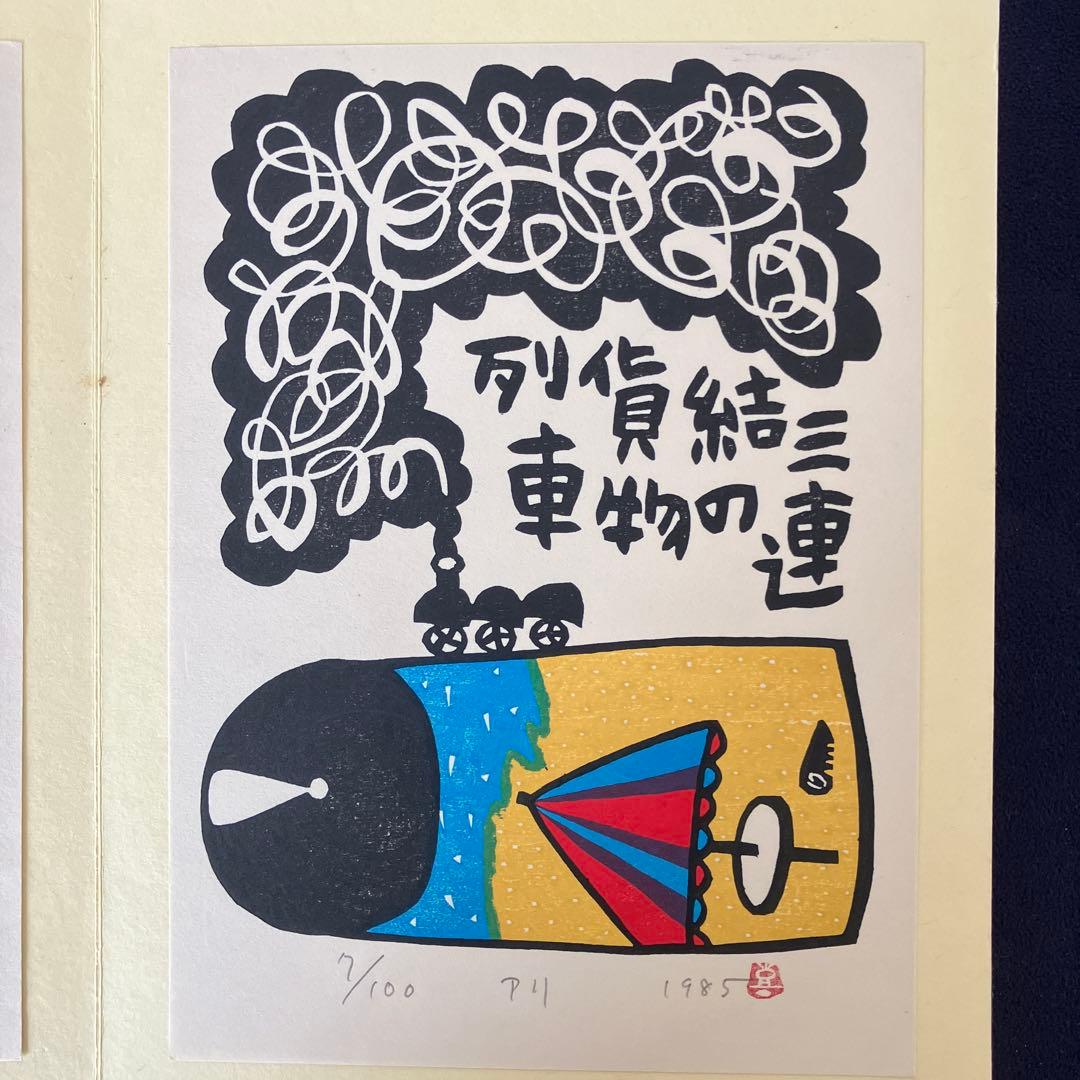 三連
結の
貨物
列車
7/100 アリ 1985